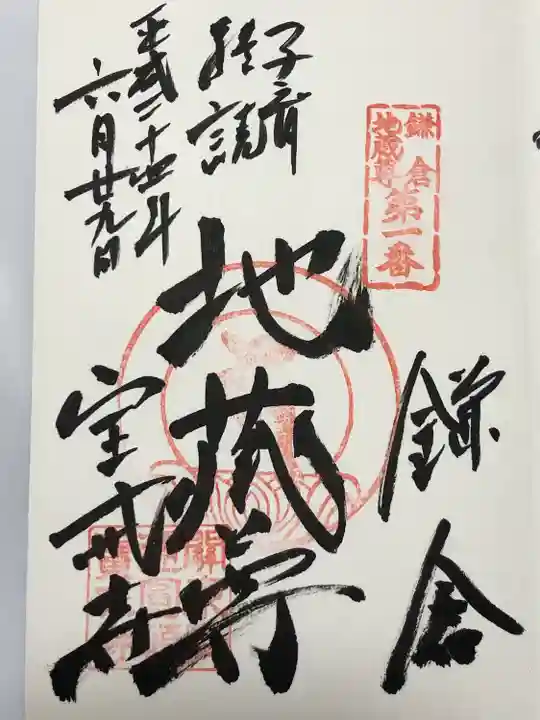 鎌倉
地蔵尊
第一番
鎌倉
地蔵尊
宝戒寺
子育
経読
平成二十四年
六月廿九日